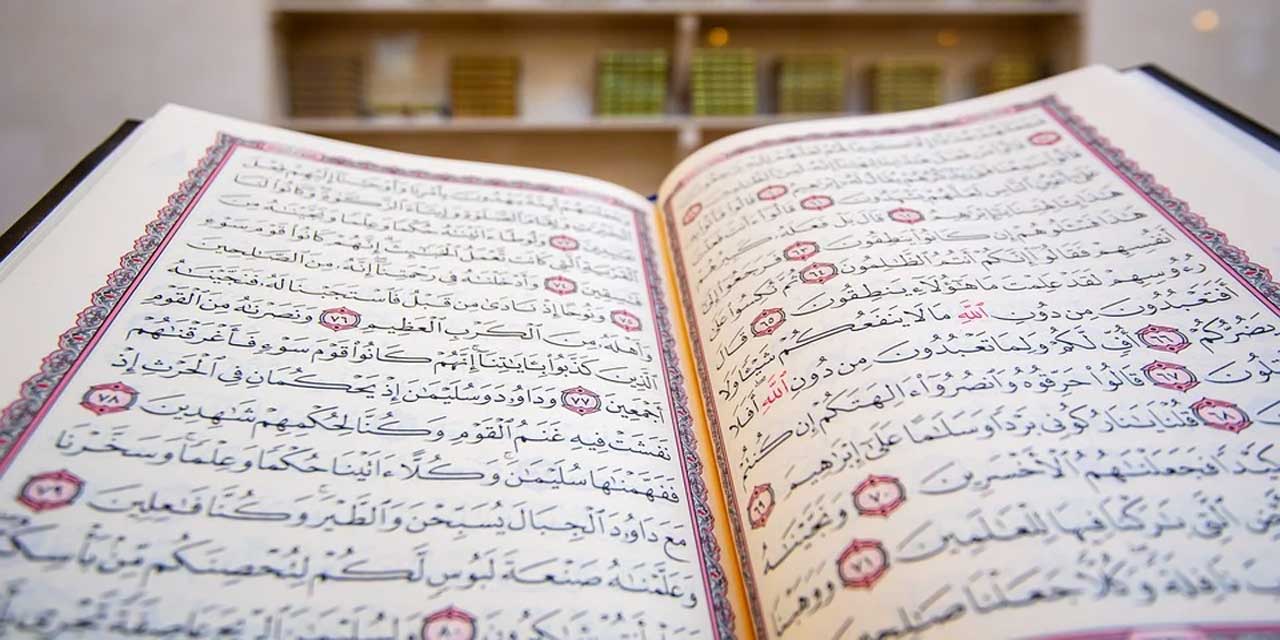 عَلَىٰٓ أَعْيُنِ ٱلنَّاسِ لَعَلَّهُمْ يَشْهَدُونَ ٦١ قَالُوٓا۟ ءَأَنتَ فَعَلْتَ
هَٰذَا بِـَٔالِهَتِنَا يَٰٓإِبْرَٰهِيمُ ٦٢ قَالَ بَلْ فَعَلَهُۥ كَبِيرُهُمْ
هَٰذَا فَسْـَٔلُوهُمْ إِن كَانُوا۟ يَنطِقُونَ ٦٣ فَرَجَعُوٓا۟ إِلَىٰٓ
أَنفُسِهِمْ فَقَالُوٓا۟ إِنَّكُمْ أَنتُمُ ٱلظَّٰلِمُونَ ٦٤ ثُمَّ نُكِسُوا۟ عَلَىٰ
رُءُوسِهِمْ لَقَدْ عَلِمْتَ مَا هَٰٓؤُلَآءِ يَنطِقُونَ ٦٥ قَالَ
أَفَتَعْبُدُونَ مِن دُونِ ٱللَّهِ مَا لَا يَنفَعُكُمْ شَيْـًٔا وَلَا
يَضُرُّكُمْ ٦٦ أُفٍّ لَّكُمْ وَلِمَا تَعْبُدُونَ مِن دُونِ ٱللَّهِ أَفَلَا
ٱلُونَ ٦٧ قَالُوا۟ حَرِّقُوهُ وَٱنصُرُوٓا۟ ءَالِهَتَكُمْ إِن كُنتُمْ
٦٨ قُلْنَا يَٰنَارُ كُونِى بَرْدًا وَسَلَٰمًا عَلَىٰٓ إِبْرَٰهِيمَ ٦٩
كَيْدًا فَجَعَلْنَٰهُمُ ٱلْأَخْسَرِينَ ٧٠ وَنَجَّيْنَٰهُ
ٱلَّتِى بَٰرَكْنَا فِيهَا لِلْعَٰلَمِينَ ٧١ وَوَهَبْنَا
نَافِلَةً وَكُلًّا جَعَلْنَا صَٰلِحِينَ
ٱلْخَيْرَٰتِ وَإِقَامَ ٱلصَّلَوٰةِ وَإِيتَآءَ ٱلزَّكَوٰةِ وَكَانُوا۟ لَنَا
عَٰبِدِينَ ٧٣ وَلُوطًا ءَاتَيْنَٰهُ حُكْمًا وَعِلْمًا وَنَجَّيْنَٰهُ مِنَ
ٱلْقَرْيَةِ ٱلَّتِى كَانَت تَّعْمَلُ ٱلْخَبَٰٓئِثَ إِنَّهُمْ كَانُوا۟ قَوْمَ سَوْءٍ
فَٰسِقِينَ ٧٤ وَأَدْخَلْنَٰهُ فِى رَحْمَتِنَآ إِنَّهُۥ مِنَ ٱلصَّٰلِحِينَ
٧٥ وَنُوحًا إِذْ نَادَىٰ مِن قَبْلُ فَٱسْتَجَبْنَا لَهُۥ فَنَجَّيْنَٰهُ
وَأَهْلَهُۥ مِنَ ٱلْكَرْبِ ٱلْعَظِيمِ ٧٦ وَنَصَرْنَٰهُ مِنَ ٱلْقَوْمِ
ٱلَّذِينَ كَذَّبُوا۟ بِـَٔايَٰتِنَآ إِنَّهُمْ كَانُوا۟ قَوْمَ سَوْءٍ فَأَغْرَقْنَٰهُمْ
أَجْمَعِينَ ٧٧ وَدَاوُۥدَ وَسُلَيْمَٰنَ إِذْ يَحْكُمَانِ فِى ٱلْحَرْثِ إِذْ
نَفَشَتْ فِيهِ غَنَمُ ٱلْقَوْمِ وَكُنَّا لِحُكْمِهِمْ شَٰهِدِينَ ٧٨
فَفَهَّمْنَٰهَا سُلَيْمَٰنَ وَكُلًّا ءَاتَيْنَا حُكْمًا وَعِلْمًا وَسَخَّرْنَا
مَعَ دَاوُۥدَ ٱلْجِبَالَ يُسَبِّحْنَ وَٱلطَّيْرَ وَكُنَّا فَٰعِلِينَ ٧٩
وَعَلَّمْنَٰهُ صَنْعَةَ لَبُوسٍ لَّكُمْ لِتُحْصِنَكُم مِّنۢ بَأْسِكُمْ
أَنتُمْ شَٰكِرُونَ ٨٠ وَلِسُلَيْمَٰنَ ٱلرِّيحَ عَاصِفَةً تَجْرِى